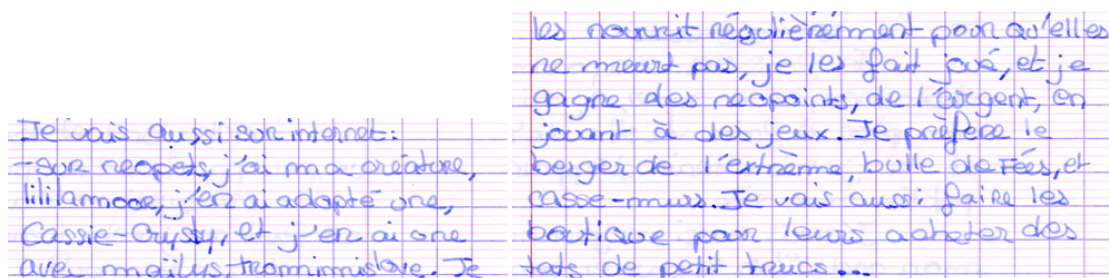 Je vais aussi sur internet:
-sur neopets, j'ai ma créature,
lililamooe, j'en ai adopté une,
Cassie-Crysty, et j'en ai une
avec maïlys, tromimislove. Je
les nourrit régulièrement pour qu'elles
ne meurt pas, je les fait joué, et je
gagne des neopoints, de l'argent, en
jouant à des jeux. Je préfère le
berger de l'extrême, bulle de Fées, et
casse-murs. Je vais aussi faire les
boutique pour leurs acheter des
tats de petit trucs...